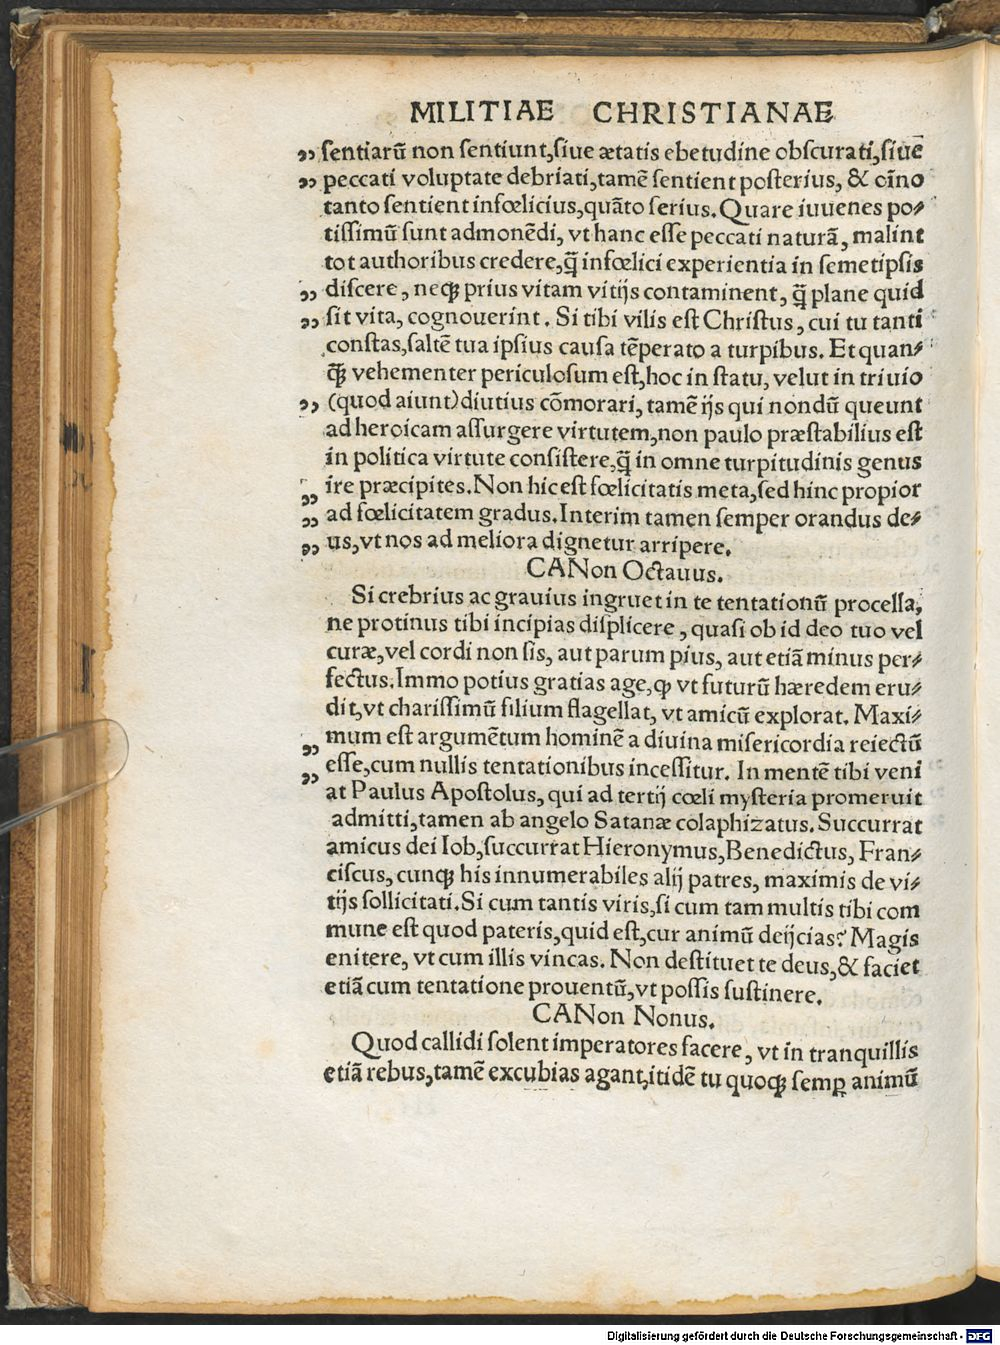 MILITIAE CHRISTIANAE
„ ſentiarū non ſentiunt,ſiue ætatis ebetudine obſcurati,ſiue
„ peccati voluptate debriati,tamē ſentient poſterius, & oīno
tanto ſentient infœlicius,quāto ſerius.Quare iuuenes po⸗
tiſſimū ſunt admonēdi, vt hanc eſſe peccati naturā, malint
tot authoribus credere,q̄ infœlici experientia in ſemetipſis
„ diſcere, neqꝫ prius vitam vitijs contaminent, q̄ plane quid
„ ſit vita, cognouerint. Si tibi vilis eſt Chriſtus, cui tu tanti
conſtas,ſaltē tua ipſius cauſa tēperato a turpibus. Et quan⸗
qꝫ vehementer periculoſum eſt,hoc in ſtatu, velut in triuio
„ (quod aiunt)diutius cōmorari, tamē ijs qui nondū queunt
ad heroicam aſſurgere virtutem,non paulo præſtabilius eſt
in politica virtute conſiſtere,q̄ in omne turpitudinis genus
„ ire præcipites.Non hic eſt fœlicitatis meta,ſed hinc propior
„ ad fœlicitatem gradus.Interim tamen ſemper orandus de⸗
„ us,vt nos ad meliora dignetur arripere.
CANon Octauus.
Si crebrius ac grauius ingruet in te tentationū procella,
ne protinus tibi incipias diſplicere, quaſi ob id deo tuo vel
curæ,vel cordi non ſis, aut parum pius, aut etiā minus per⸗
fectus.Immo potius gratias age,ꝙ vt futurū hæredem eru⸗
dit,vt chariſſimū filium flagellat, vt amicū explorat. Maxi⸗
„ mum eſt argumētum hominē a diuina miſericordia reiectū
„ eſſe,cum nullis tentationibus inceſſitur. In mentē tibi veni
at Paulus Apoſtolus, qui ad tertij cœli myſteria promeruit
admitti,tamen ab angelo Satanæ colaphizatus.Succurrat
amicus dei Iob,ſuccurrat Hieronymus,Benedictus, Fran⸗
ciſcus, cunqꝫ his innumerabiles alij patres, maximis de vi⸗
tijs ſollicitati.Si cum tantis viris,ſi cum tam multis tibi com
mune eſt quod pateris,quid eſt,cur animū deijcias? Magis
enitere, vt cum illis vincas. Non deſtituet te deus,& faciet
etiā cum tentatione prouentū,vt poſſis ſuſtinere.
CANon Nonus.
Quod callidi ſolent imperatores facere, vt in tranquillis
etiā rebus,tamē excubias agant,itidē tu quoqꝫ ſemꝑ animū
Digitalisierung gefördert durch die Deutsche Forschungsgemeinschaft - DFG